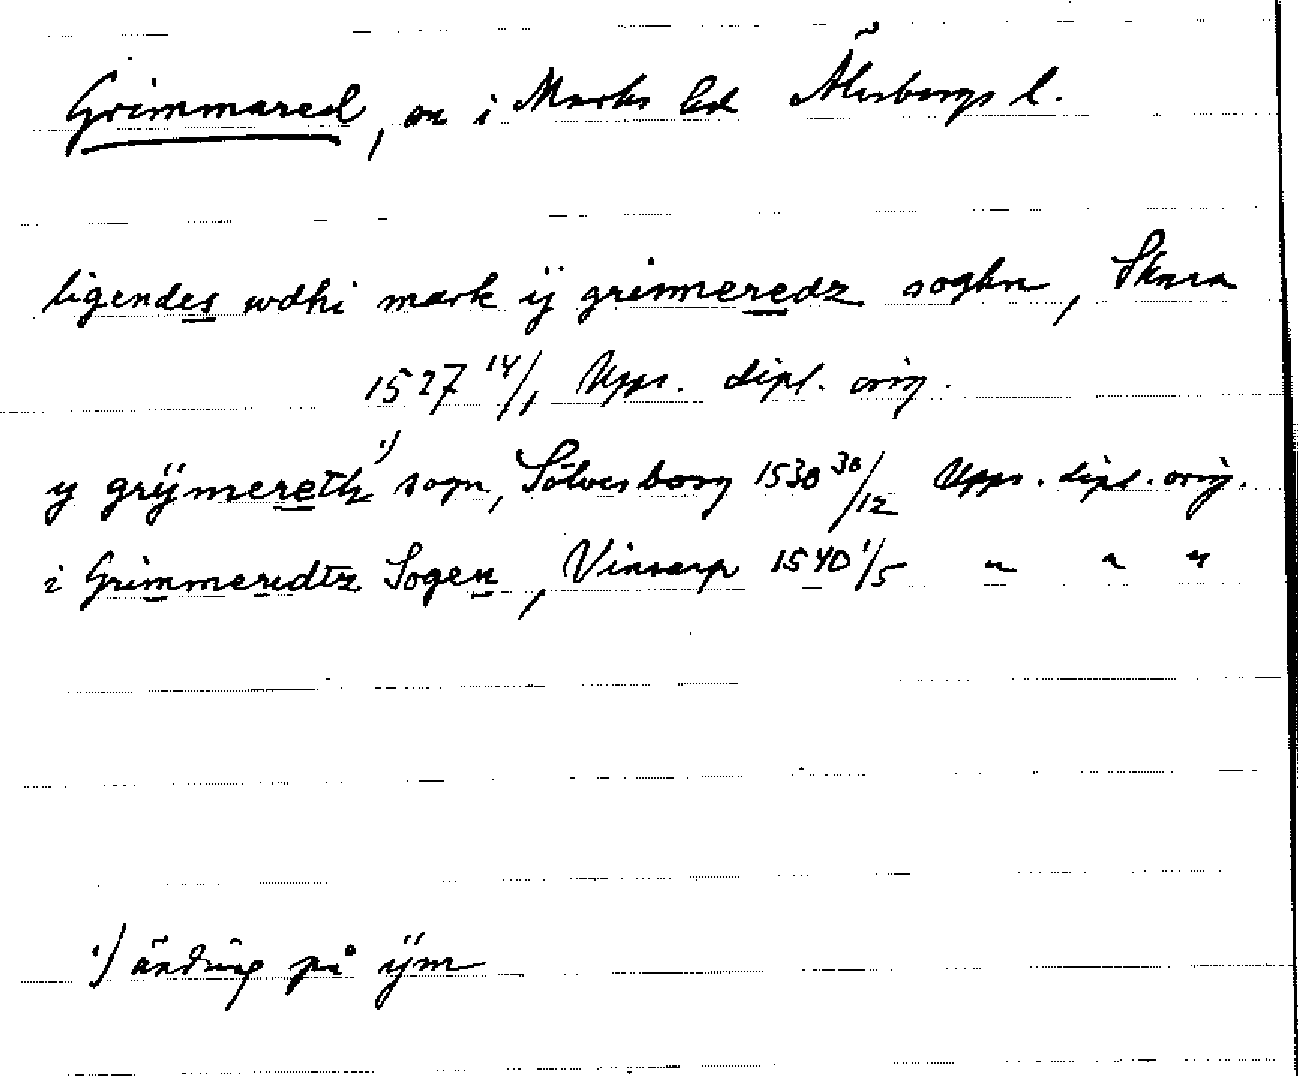 Grimmared, sn i Marks hd Älvsborgs l.
ligendes wdhi mark ij grimmeredz soghn, Skara
1527 14/1 Upps. dipl. orig.
y grijmereth 1) sogn, Sölvesborg 1530 30/12 Upps. dipl. orig.
i Grimmeredtz Sogen, Vinsarp 1540 1/5 " " "
1) ändring på ijm